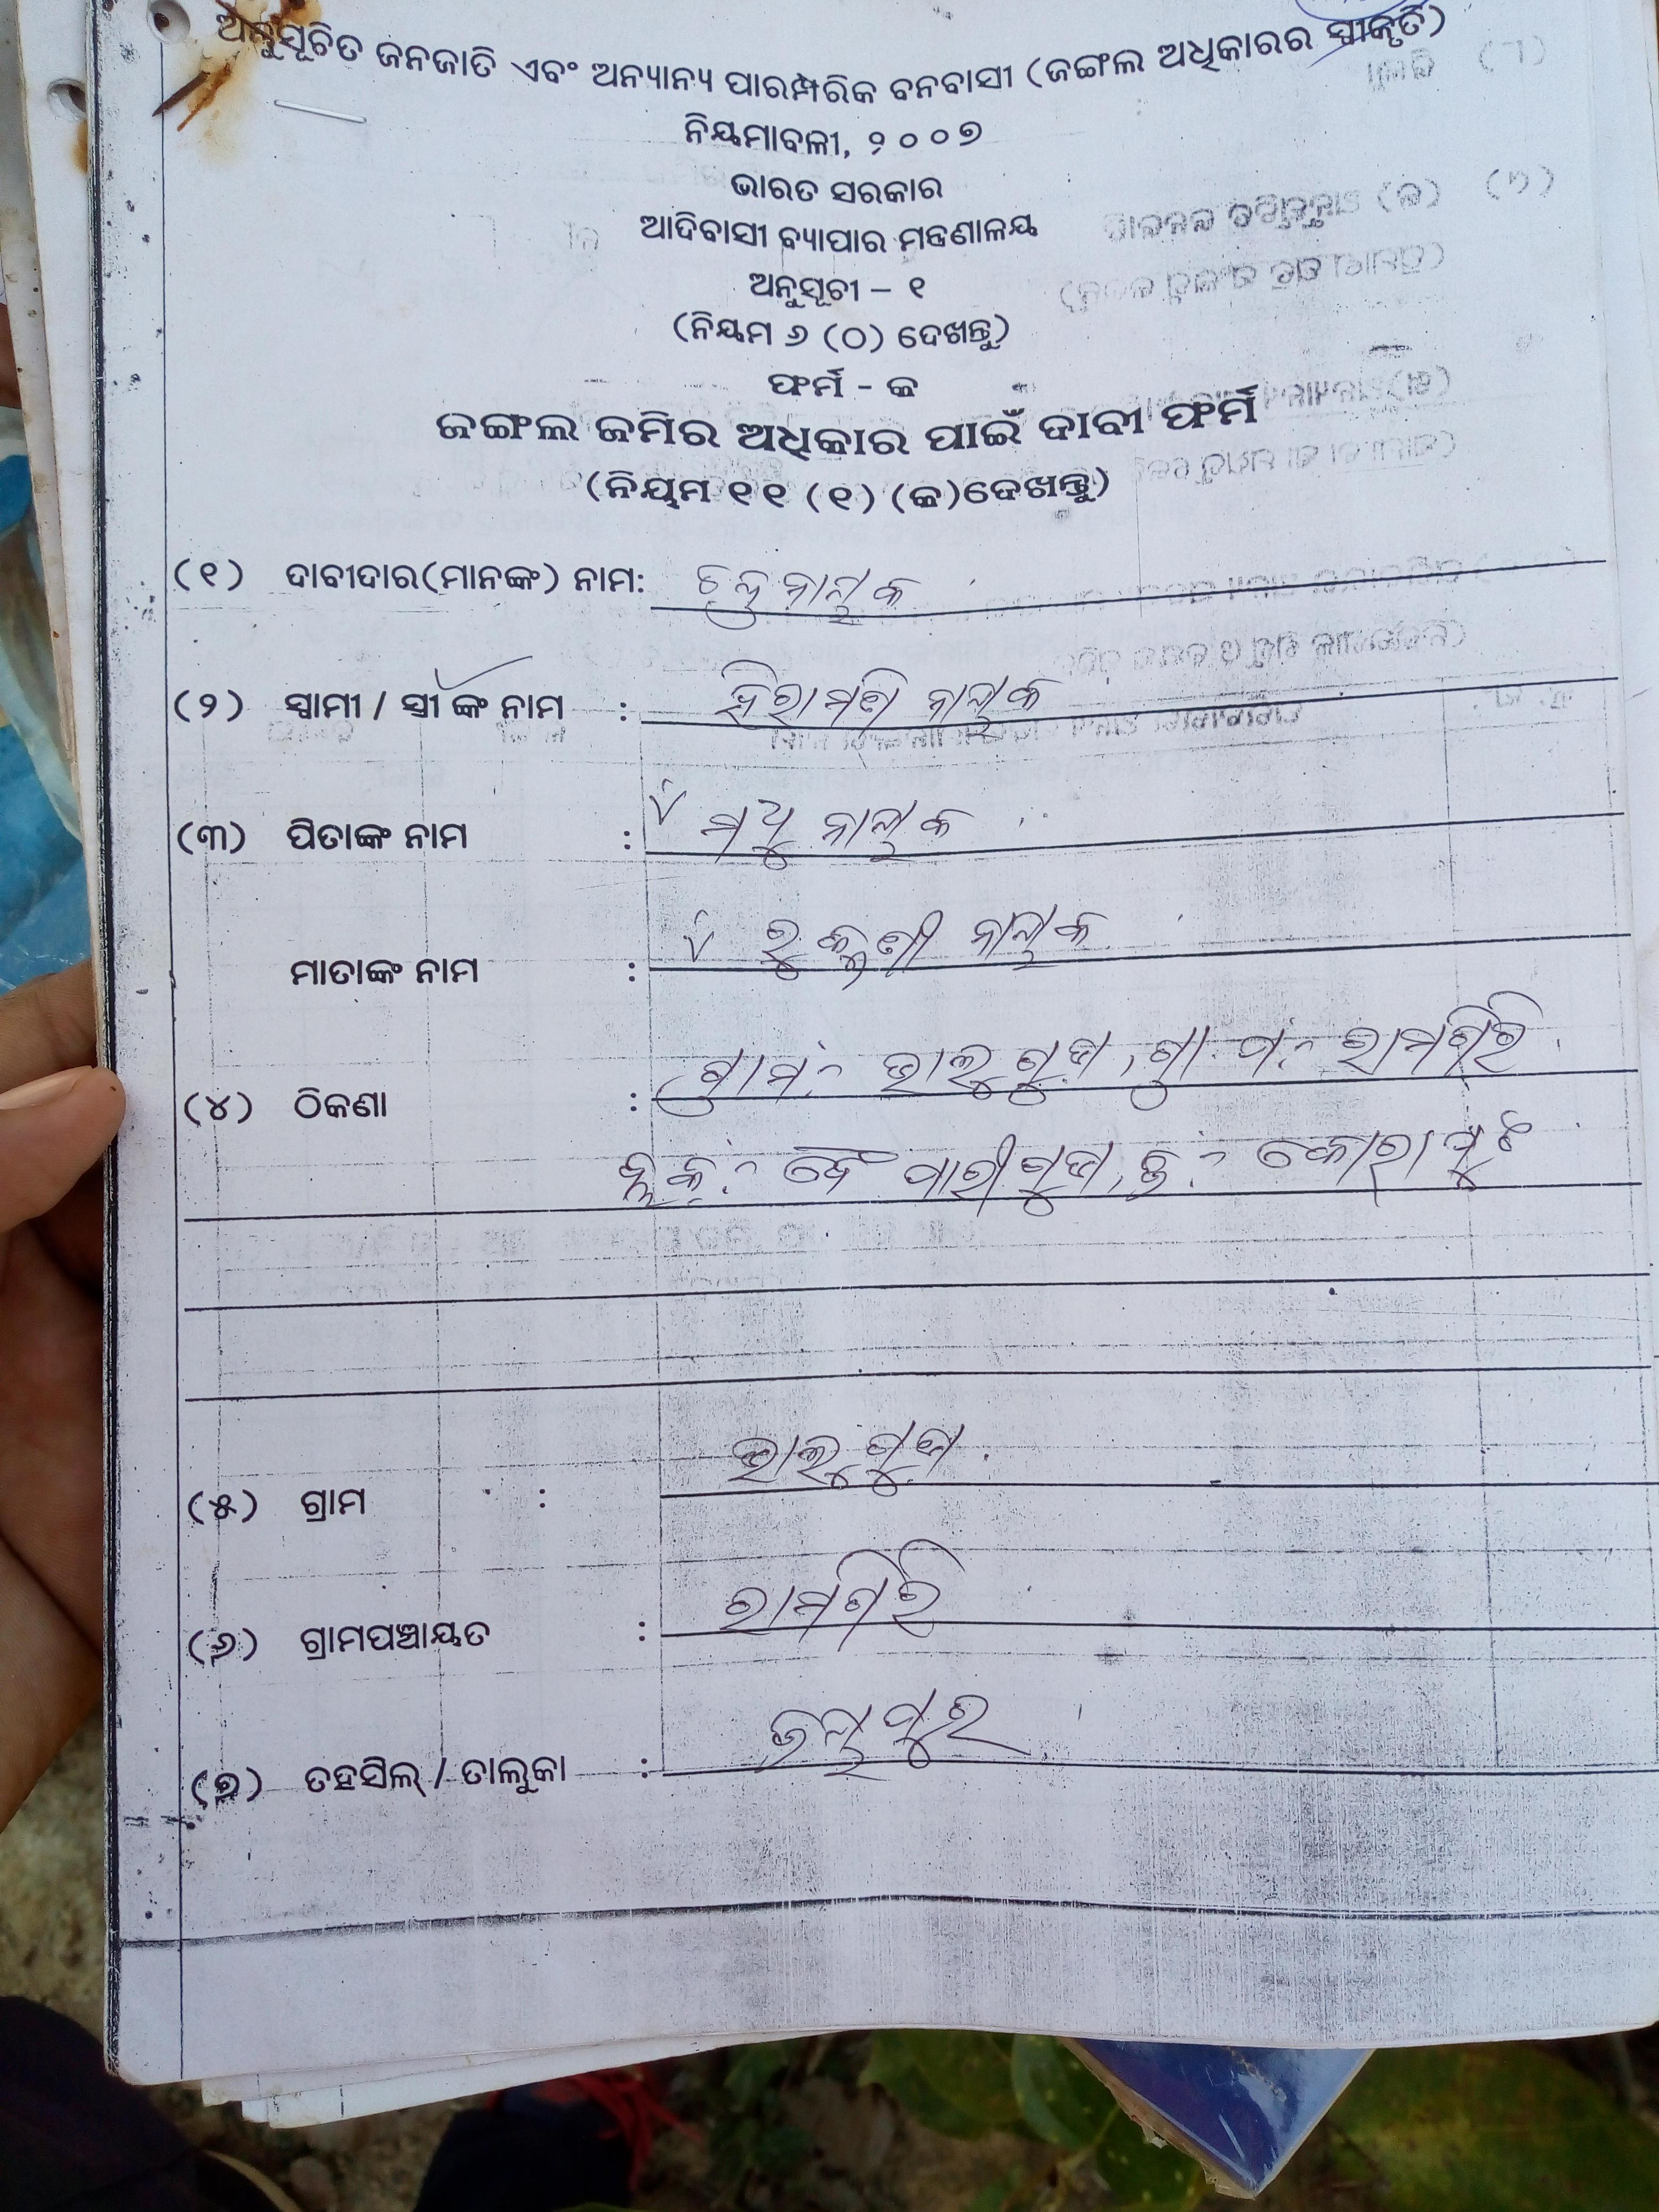 ଅନୁସୂଚିତ ଜନଜାତି ଏବଂ ଅନ୍ୟାନ୍ୟ ପାରମ୍ପରିକ ବନବାସୀ (ଜଙ୍ଗଲ ଅଧିକାରର ସ୍ୱୀକୃତି)
ନିୟମାବଳୀ, ୨୦୦୭
ଭାରତ ସରକାର
ଆଦିବାସୀ ବ୍ୟାପାର ମନ୍ତ୍ରଣାଳୟ
ଅନୁସୂଚୀ – ୧
(ନିୟମ ୬ (ଠ) ଦେଖନ୍ତୁ)
ଫର୍ମ - କ
ଜଙ୍ଗଲ ଜମିର ଅଧିକାର ପାଇଁ ଦାବୀ ଫର୍ମ
(ନିୟମ ୧୧ (୧) (କ)ଦେଖନ୍ତୁ)
(୧) ଦାବୀଦାର(ମାନଙ୍କ) ନାମ: ନାୟକ
(୨) ସ୍ୱାମୀ / ସ୍ତ୍ରୀ ଙ୍କ ନାମ : ହିରାମଣି ନାୟକ
(୩) ପିତାଙ୍କ ନାମ : ମଧୁ ନାୟକ
ମାତାଙ୍କ ନାମ : ରୁକ୍ମଣୀ ନାୟକ
(୪) ଠିକଣା : ଗ୍ରାମ:- ଭାଲୁଗୁଡା, ଗ୍ରା. ପ:- ରାମଗିରି
ବ୍ଲକ:- ବୈପାରୀଗୁଡା, ଜି:- କୋରାପୁଟ
(୫) ଗ୍ରାମ : ଭାଲୁଗୁଡା
(୬) ଗ୍ରାମପଞ୍ଚାୟତ : ରାମଗିରି
(୭) ତହସିଲ୍ / ତାଲୁକା : ଜୟପୁର